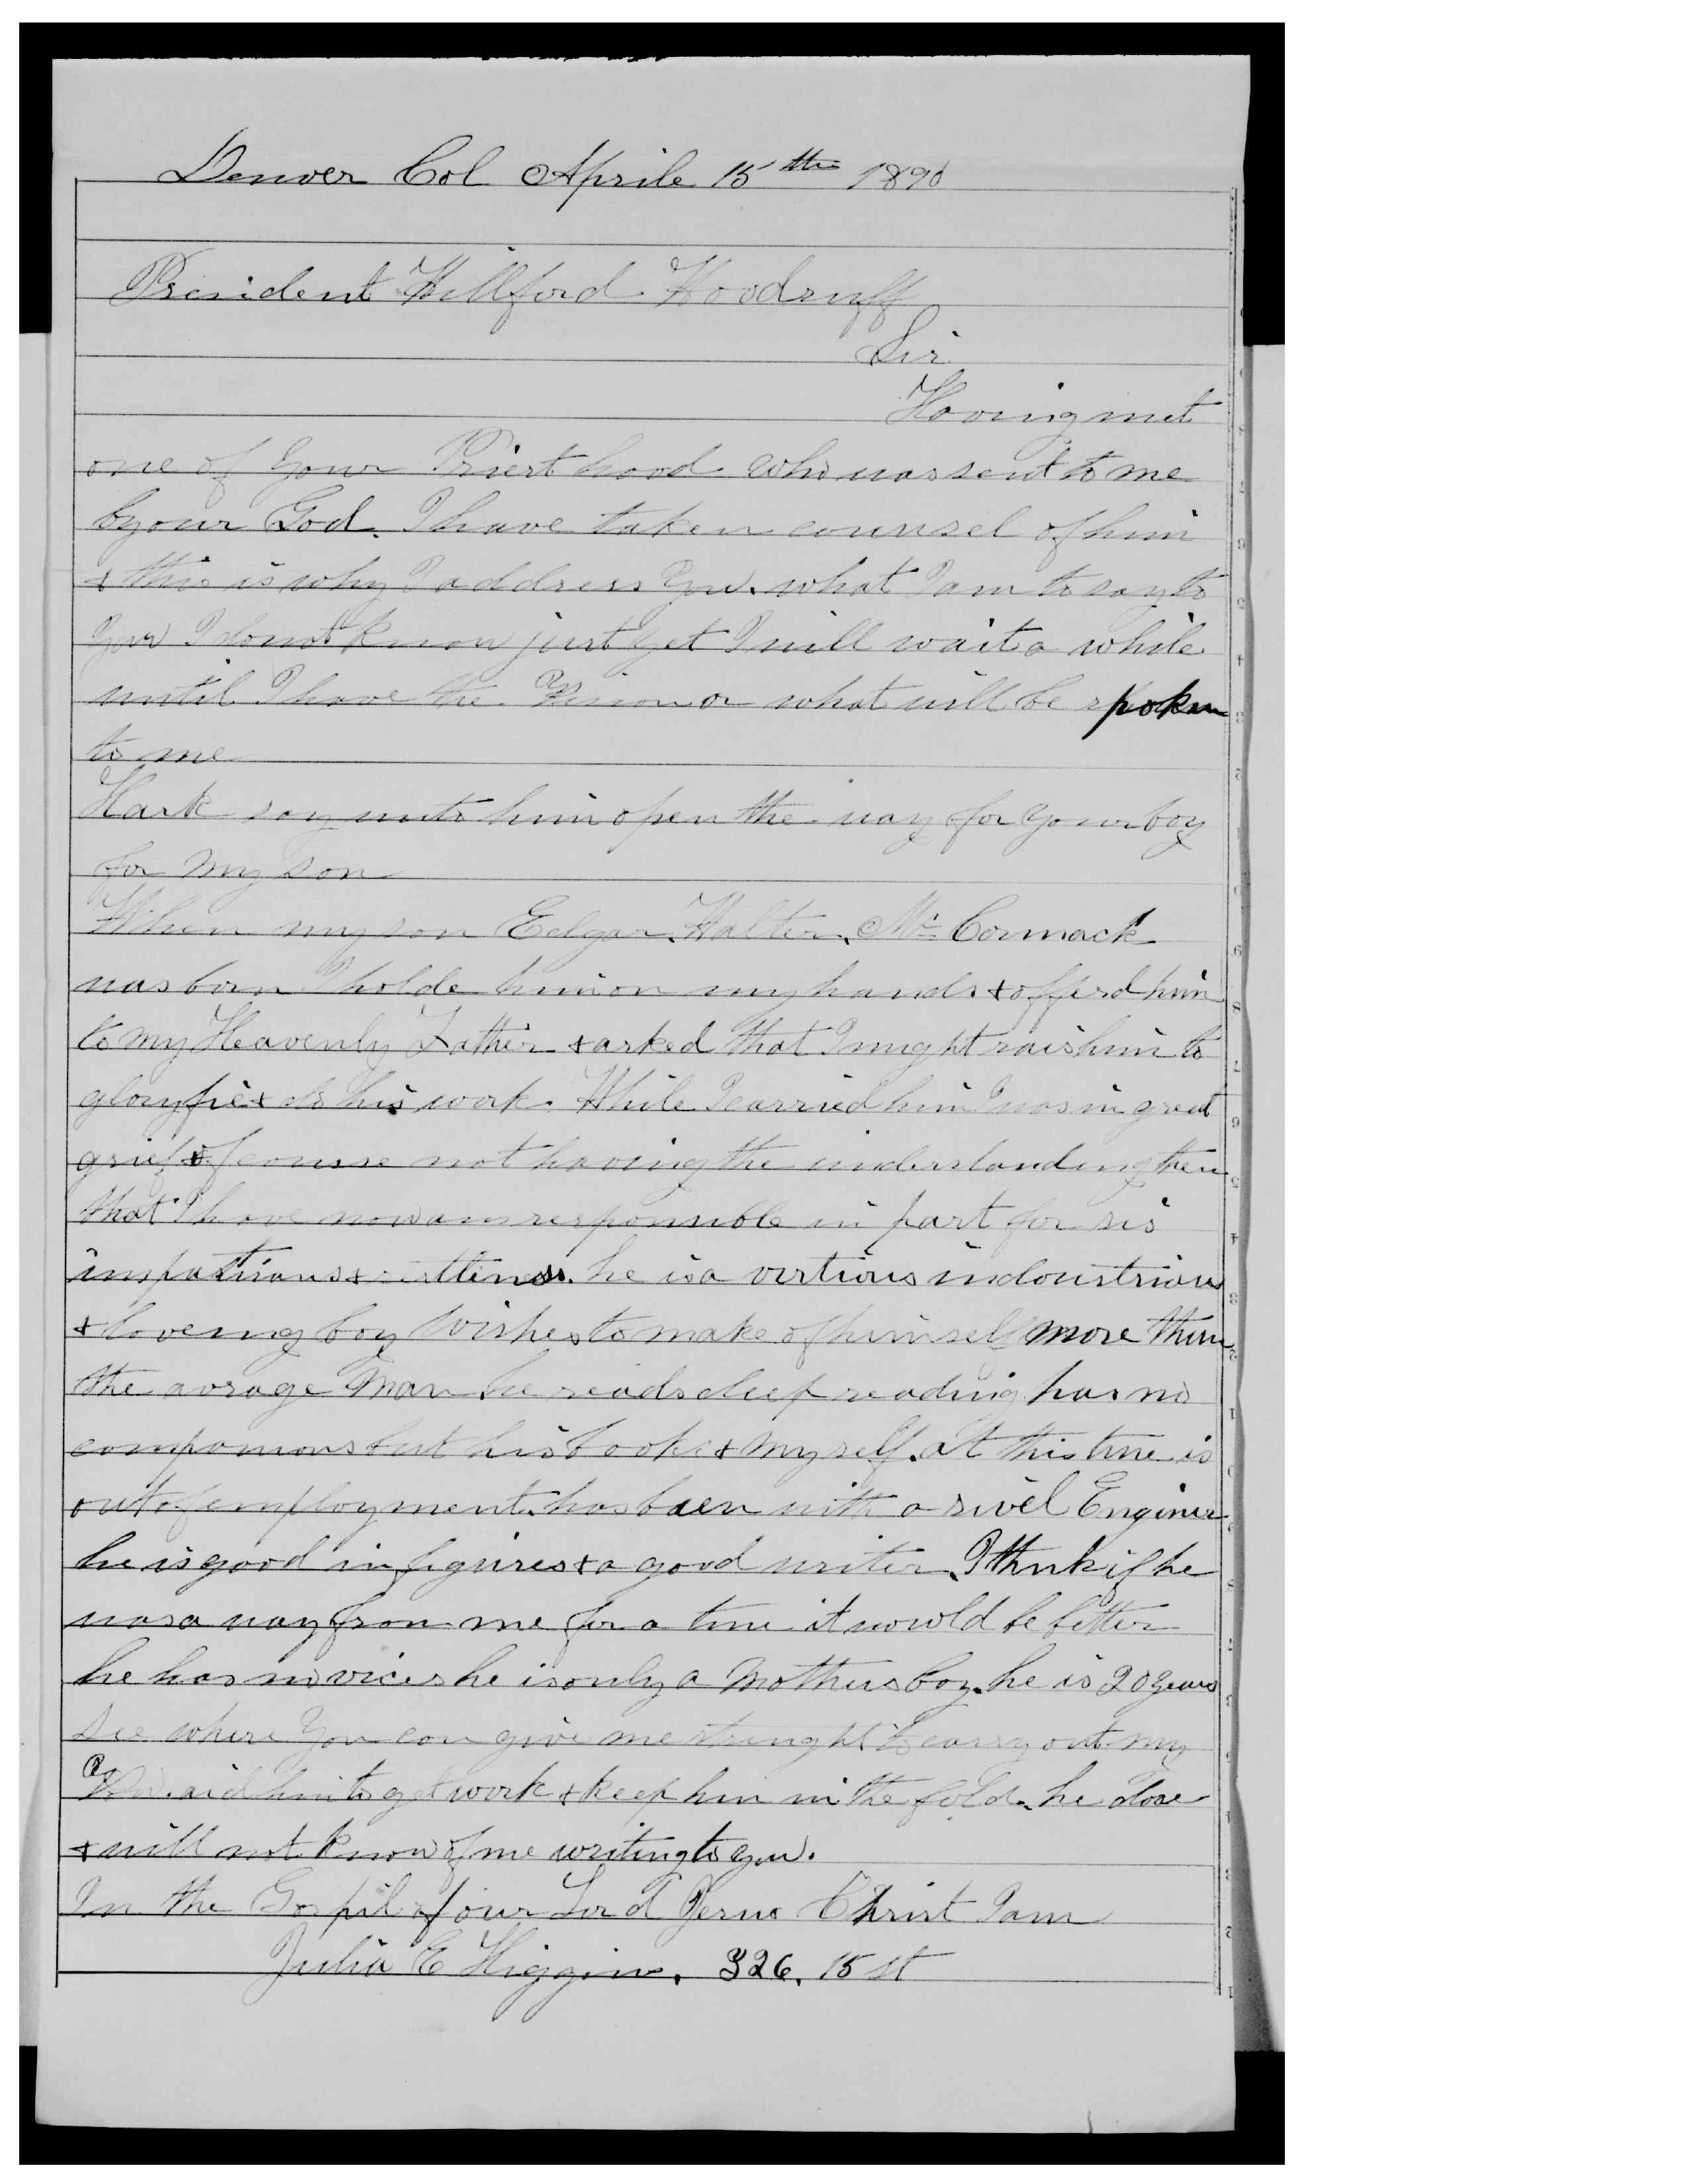 Denver Col Aprile 15th 1890
President Willford Woodruff
Sir
Having met
one of your Priest hood who was sent to me
by our God. I have taken counsel of him
& this is why I address you. what I am to say to
you I do not know just yet I will wait a while
until I have the Vision or what will be spoken
to me
Hark say unto him open the way for your boy
for my son
When my son Edgar. Walter. Mc Cormack
was born I holde him on my hands & offerd him
to my Heavenly Father & asked that I might rais him to
gloryfie & do his work. While I carried him I was in great
grief & of course not having the understanding then
that I have now am responsible in part for his
impatians & restlness. he is a vertious indoustrious
& loveing boy wishes to make of himself more than
the avrage Man he reads deep reading has no
companions but his books & myself. at this time is
out of employment. has been with a sivel Enginer
he is good in figures & a good writer. I think if he
was a way from me for a time it would be better
he has no vices he is only a Mothers boy. he is 20 years
see where you can give me strenght to carry out my
Vow. aid him to get work & keep him in the fold. he dose
& will not know of me writing to you.
In the Gospil of our Lord Jesus Christ I am
Julia E Higgins. 326. 15 st